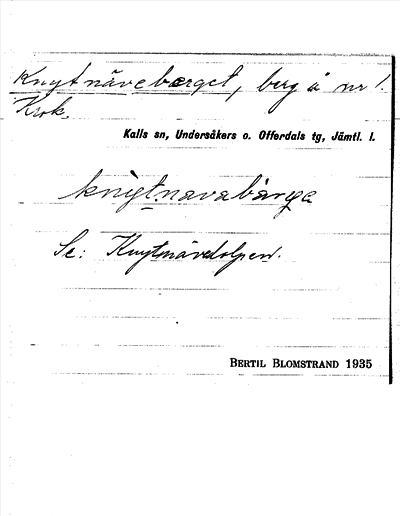 Knytnäveberget, berg å nr 1.
Krok.
Kalls sn, Undersåkers o. Offerdals tg, Jämtl. l.
knỳtnavabärga
Se: Knytnävdolpen.
BERTIL BLOMSTRAND 1935